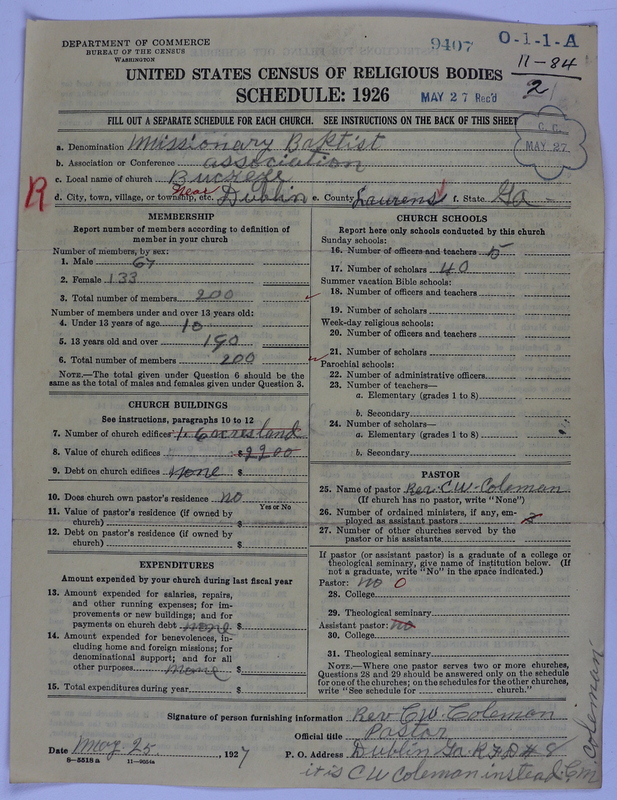 DEPARTMENT OF COMMERCE
BUREAU OF THE CENSUS
WASHINGTON
9407 O-1-1-A
11-84
2
UNITED STATES CENSUS OF RELIGIOUS BODIES
SCHEDULE: 1926
MAY 27 Rec'd
FILL OUT A SEPARATE SCHEDULE FOR EACH CHURCH. SEE INSTRUCTIONS ON THE BACK OF THIS SHEET
MAY 27
a. Denomination Missionary Baptist
b. Association or Conference association
c. Local name of church
R
d. City, town, village, or township, etc. Near Dublin e. County Laurens f. State Ga
MEMBERSHIP
Report number of members according to definition of
member in your church
Number of members, by sex:
1. Male 67
2. Female 133
3. Total number of members 200
Number of members under and over 13 years old:
4. Under 13 years of age 10
5. 13 years old and over 190
6. Total number of members 200
NOTE.—The total given under Question 6 should be the
same as the total of males and females given under Question 3.
CHURCH BUILDINGS
See instructions, paragraphs 10 to 12
7. Number of church edifices 1. 6 acres land
8. Value of church edifices $2200
9. Debt on church edifices none $
10. Does church own pastor's residence no
Yes or No
11. Value of pastor's residence (if owned by
church) $
12. Debt on pastor's residence (if owned by
church) $
EXPENDITURES
Amount expended by your church during last fiscal year
13. Amount expended for salaries, repairs,
and other running expenses; for im-
provements or new buildings; and for
payments on church debt none $
14. Amount expended for benevolences, in-
cluding home and foreign missions; for
denominational support; and for all
other purposes none $
15. Total expenditures during year $
CHURCH SCHOOLS
Report here only schools conducted by this church
Sunday schools:
16. Number of officers and teachers 5
17. Number of scholars 40
Summer vacation Bible schools:
18. Number of officers and teachers
19. Number of scholars
Week-day religious schools:
20. Number of officers and teachers
21. Number of scholars
Parochial schools:
22. Number of administrative officers
23. Number of teachers—
a. Elementary (grades 1 to 8)
b. Secondary
24. Number of scholars—
a. Elementary (grades 1 to 8)
b. Secondary
PASTOR
25. Name of pastor Rev. C W. Coleman
(If church has no pastor, write "None")
26. Number of ordained ministers, if any, em-
ployed as assistant pastors
27. Number of other churches served by the
pastor or his assistants
If pastor (or assistant pastor) is a graduate of a college or
theological seminary, give name of institution below. (If
not a graduate, write "No" in the space indicated.)
Pastor: no 0
28. College
29. Theological seminary
Assistant pastor: no
30. College
31. Theological seminary
NOTE.—Where one pastor serves two or more churches,
Questions 28 and 29 should be answered only on the schedule
for one of the churches; on the schedules for the other churches,
write "See schedule for church."
Signature of person furnishing information Rev C W. Coleman
Official title Pastor
Date May 25, 1927 P. O. Address Dublin Ga. R F D # 8
8—5518 a
it is C W Coleman instead
Coleman